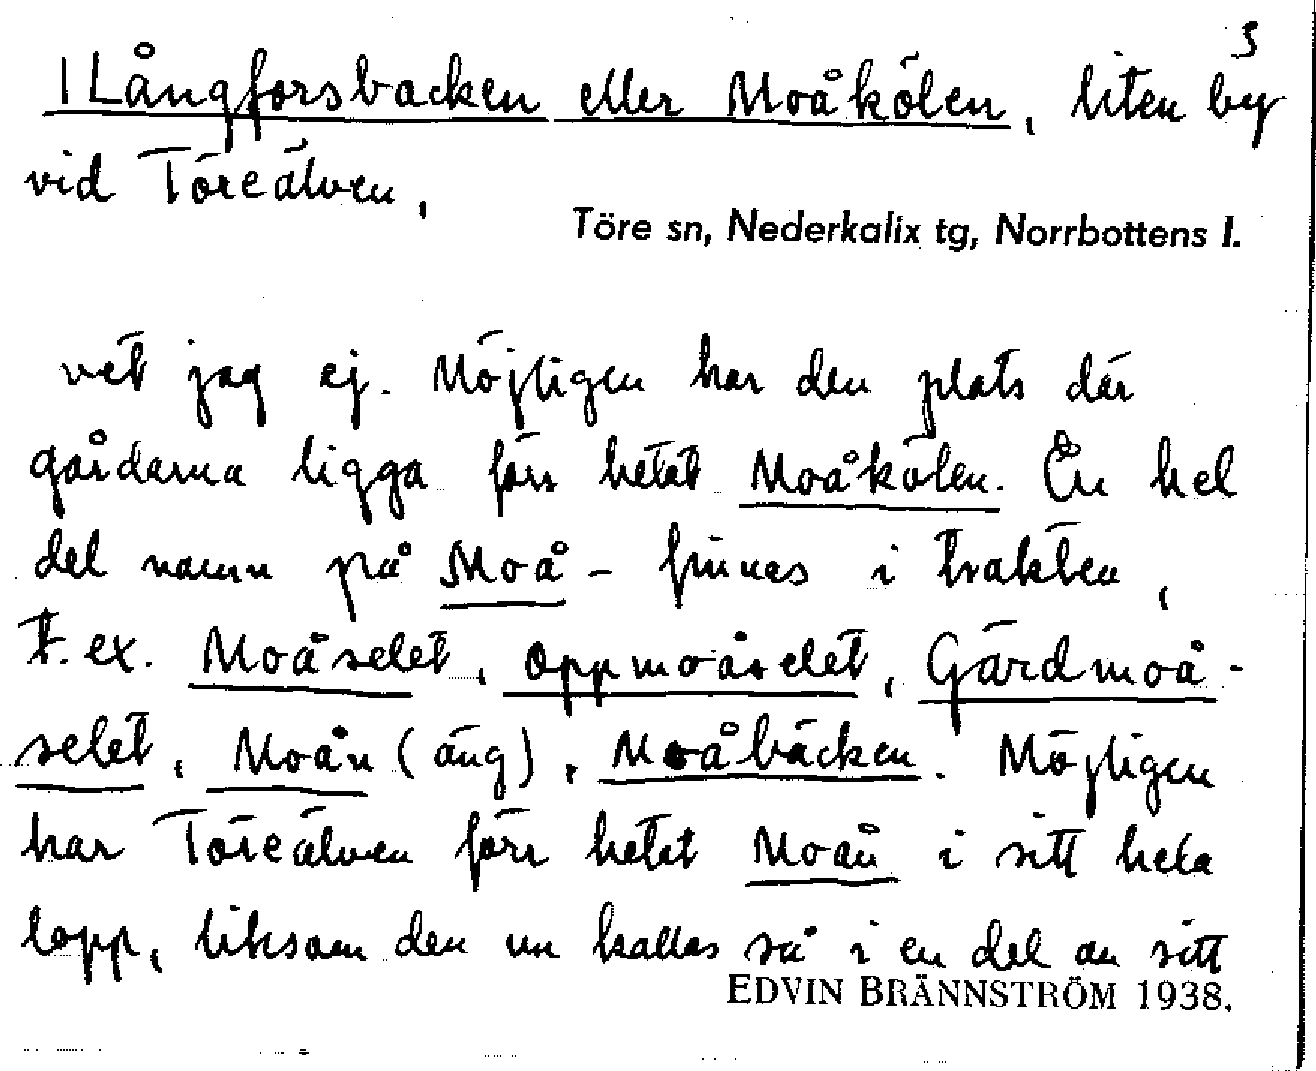 3
1 Långforsbacken eller Moåkölen, liten by
vid Töreälven,
Töre sn, Nederkalix tg, Norrbottens l.
vet jag ej. Möjligen har den plats där
gårdarna ligga förr hetat Moåkölen. En hel
del namn på Moå- finnes i trakten,
t. ex. Moåselet, Oppmoåselet, Gärdmoå-
selet, Moån (äng), Moåbäcken. Möjligen
har Töreälven förr hetat Moån i sitt hela
lopp, liksom den nu kallas så i en del av sitt
EDVIN BRÄNNSTRÖM 1938.